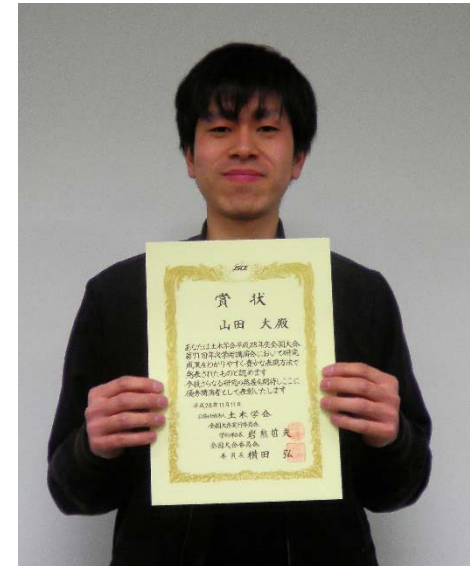 JSCE
賞状
山田 大殿
あなたは土木学会平成28年度全国大会
第71回年次学術講演会において研究
成果をわかりやすく豊かな表現方法で
発表されたものと認めます
今後さらなる研究の発展を期待しここに
優秀講演者として表彰いたします
平成28年11月11日
公益社団法人 土木学会
全国大会実行委員会
全国大会委員会
委員長 横田 弘